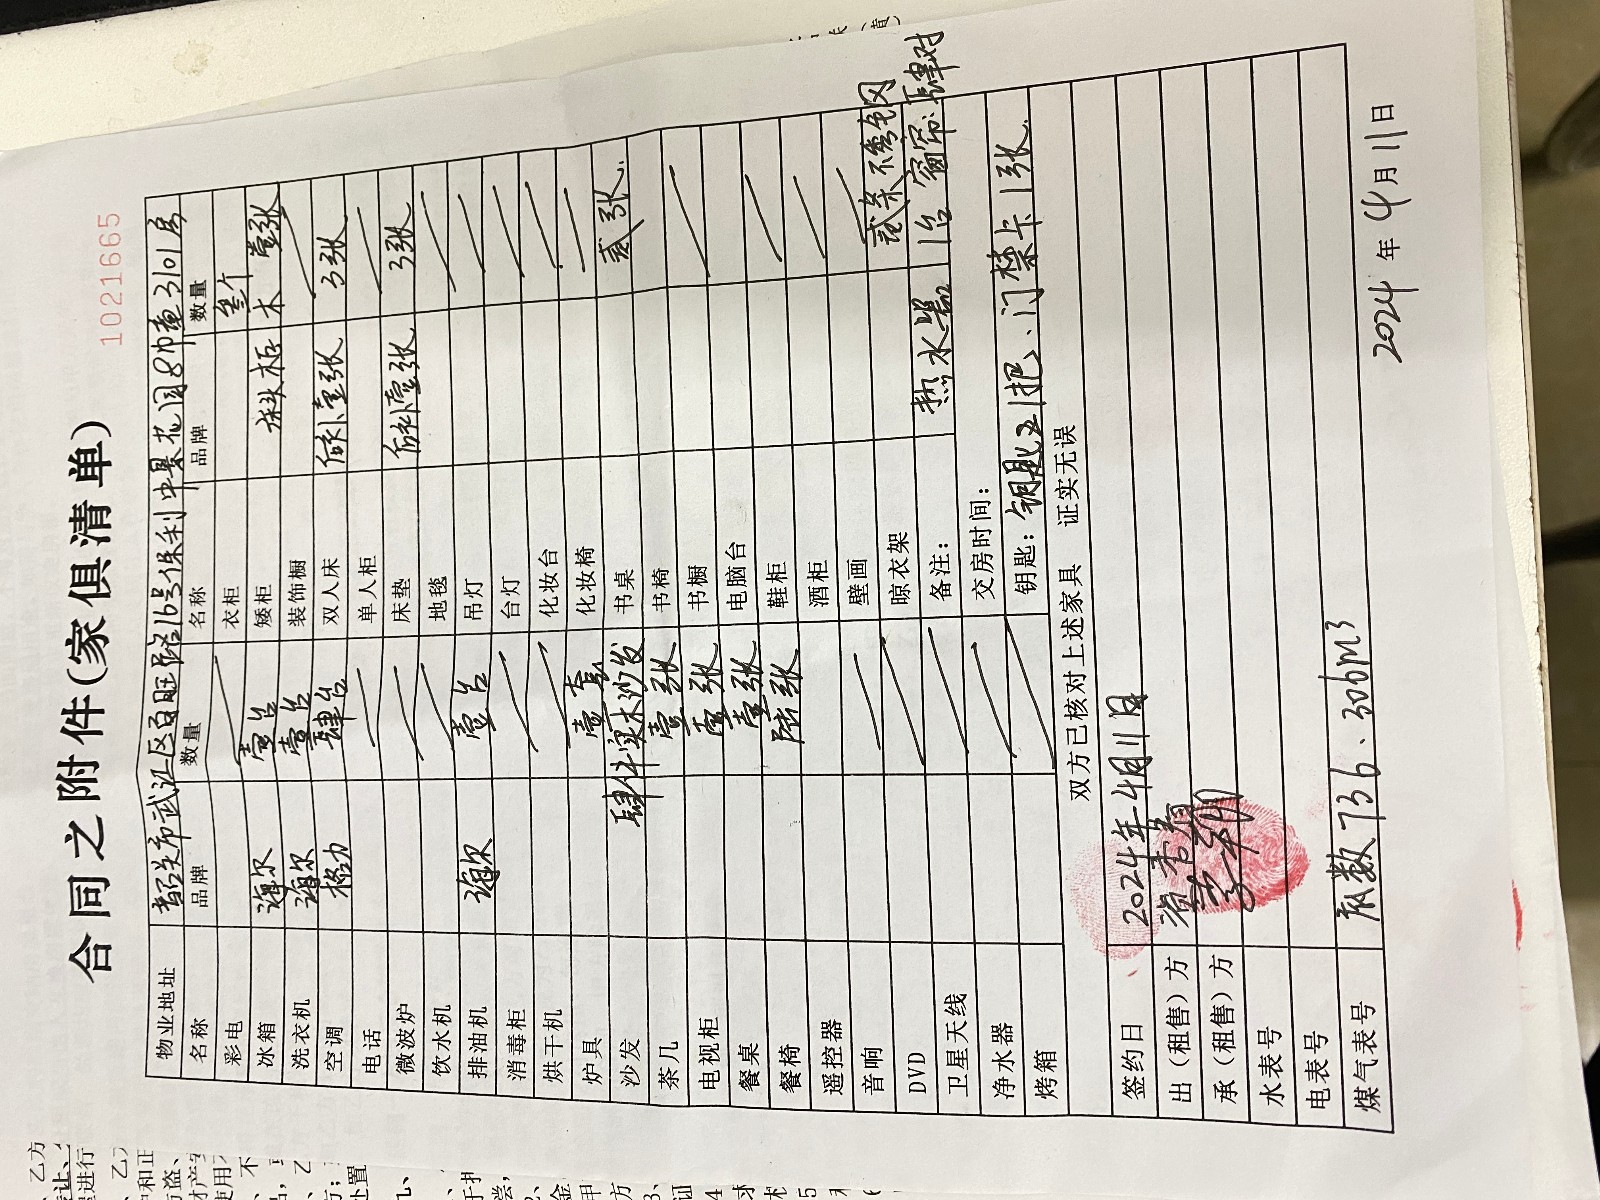 合同之附件(家俱清单)
1021665
物业地址 韶关市武江区百旺路16号保利中景花园8幢3101房
名称 品牌 数量 名称 品牌 数量
彩电 衣柜
冰箱 海尔 壹台 矮柜 木 壹张
洗衣机 海尔 壹台 装饰橱
空调 格力 肆台 双人床 后补壹张 3张
电话 单人柜
微波炉 床垫 后补壹张 3张
饮水机 地毯
排油机 海尔 壹台 吊灯
消毒柜 台灯
烘干机 化妆台
炉具 壹套 化妆椅
沙发 肆件实木沙发 书桌 贰张.
茶几 壹张 书椅
电视柜 壹张 书橱
餐桌 壹张 电脑台
餐椅 陆张 鞋柜
遥控器 酒柜
音响 壁画
DVD 晾衣架 贰条不锈钢
卫星天线 备注: 热水器 1台 窗帘:肆对
净水器 交房时间:
烤箱 钥匙: 钥匙 1把、门禁卡1张.
双方已核对上述家具 证实无误
签约日 2024年4月11日
出(租售)方
承(租售)方
水表号
电表号
煤气表号 底数736.306m3
2024年4月11日